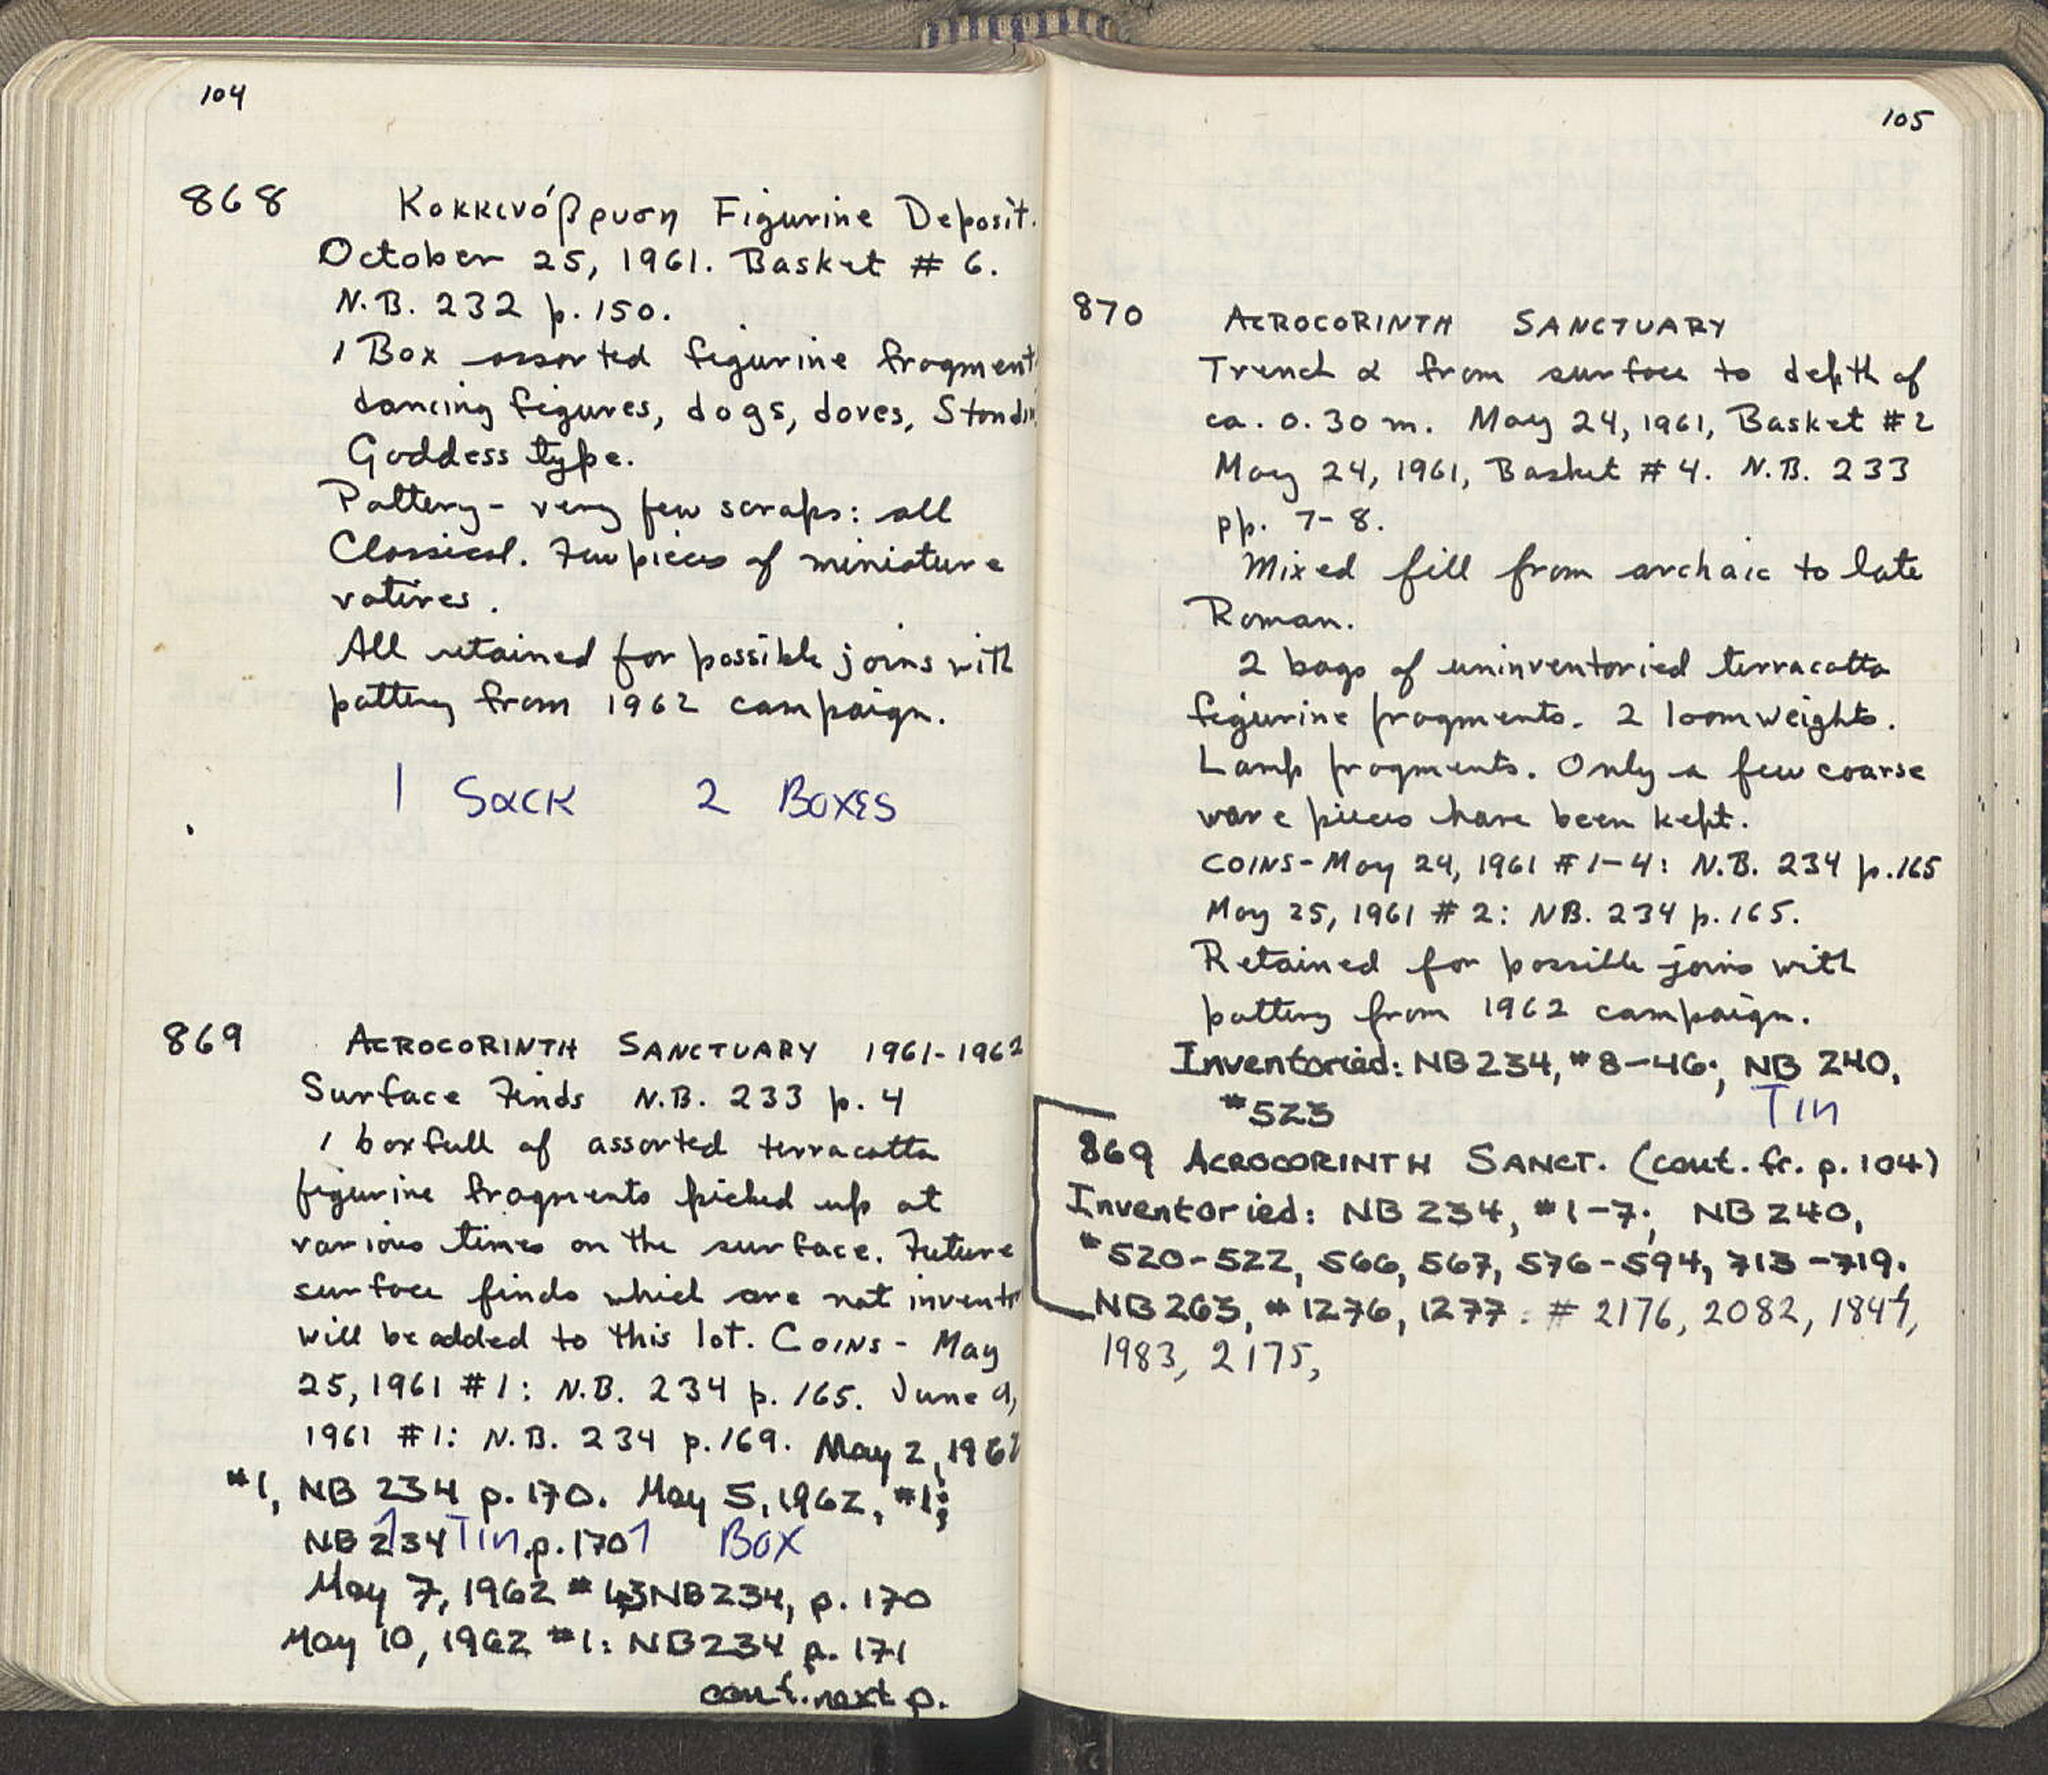 104
868 Κοκκινόβρυση Figurine Deposit.
October 25, 1961. Basket # 6.
N.B. 232 p. 150.
1 Box assorted figurine fragment
dancing figures, dogs, doves, Standin
Goddess type.
Pottery - very few scraps: all
Classical. Few pieces of miniature
votives.
All retained for possible joins with
pottery from 1962 campaign.
1 Sack 2 Boxes
869 ACROCORINTH SANCTUARY 1961-1962
Surface Finds N.B. 233 p. 4
1 box full of assorted terracotta
figurine fragments picked up at
various times on the surface. Future
surface finds which are not invent
will be added to this lot. COINS - May
25, 1961 #1: N.B. 234 p. 165. June 9,
1961 #1: N.B. 234 p. 169. May 2, 1962
#1, NB 234 p. 170. May 5, 1962, #1;
NB 234 p. 170
1 Tin 1 Box
May 7, 1962 # NB 234, p. 170
May 10, 1962 #1: NB 234 p. 171
cont. next p.
105
870 ACROCORINTH SANCTUARY
Trench α from surface to depth of
ca. 0.30 m. May 24, 1961, Basket #2
May 24, 1961, Basket #4. N.B. 233
pp. 7-8.
Mixed fill from archaic to late
Roman.
2 bags of uninventoried terracotta
figurine fragments. 2 loomweights.
Lamp fragments. Only a few coarse
ware pieces have been kept.
COINS - May 24, 1961 #1-4: N.B. 234 p. 165
May 25, 1961 #2: NB. 234 p. 165.
Retained for possible joins with
pottery from 1962 campaign.
Inventoried: NB 234, #8-46; NB 240,
#523 Tin
869 ACROCORINTH SANCT. (cont. fr. p. 104)
Inventoried: NB 234, #1-7; NB 240,
#520-522, 566, 567, 576-594, 713-719.
NB 263, #1276, 1277. # 2176, 2082,
1983, 2175,